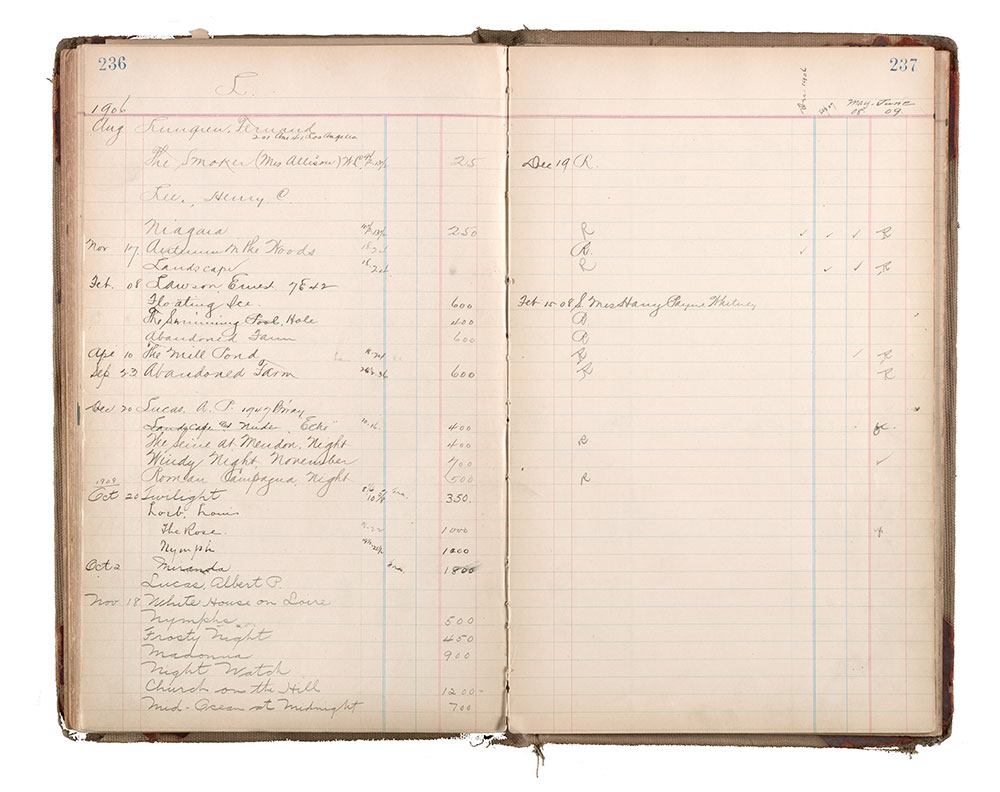 236
237
L.
1906
Dec. 1906
May- June
08. 09.
Aug Lungren, Fernand
Los Angeles
The Smoker (Mrs Allison) W.C. 25 Dec 19 R.
Lee, Henry C
Niagara 250 R
Nov 17 Autumn in the Woods R.
Landscape R
Feb. 08 Lawson Ernest 7 E 42
Floating Ice. 600 Feb 15-08 S. Mrs Harry Payne Whitney
The Swimming Pool, Hole 400
Abandoned Farm 600
Apr 10 The Mill Pond R R
Sep 23 Abandoned Farm 600 R R
Dec 20 Lucas, A. P. 1947 B'way
Landscape Nude "Echo" 10.16. 400
The Seine at Meudon, Night 400 R
Windy Night, November 700
Roman Campagna, Night 500 R
1909
Oct 20 Twilight 350.
Loeb, Louis
The Rose. 1000
Nymph 1200
Oct 2 Miranda 1800
Lucas, Albert P.
Nov 18 White House on Loire
Nymphs 500
Frosty Night 450
Madonna 900
Night Watch
Church on the Hill 1200-
Mid-Ocean at Midnight 700